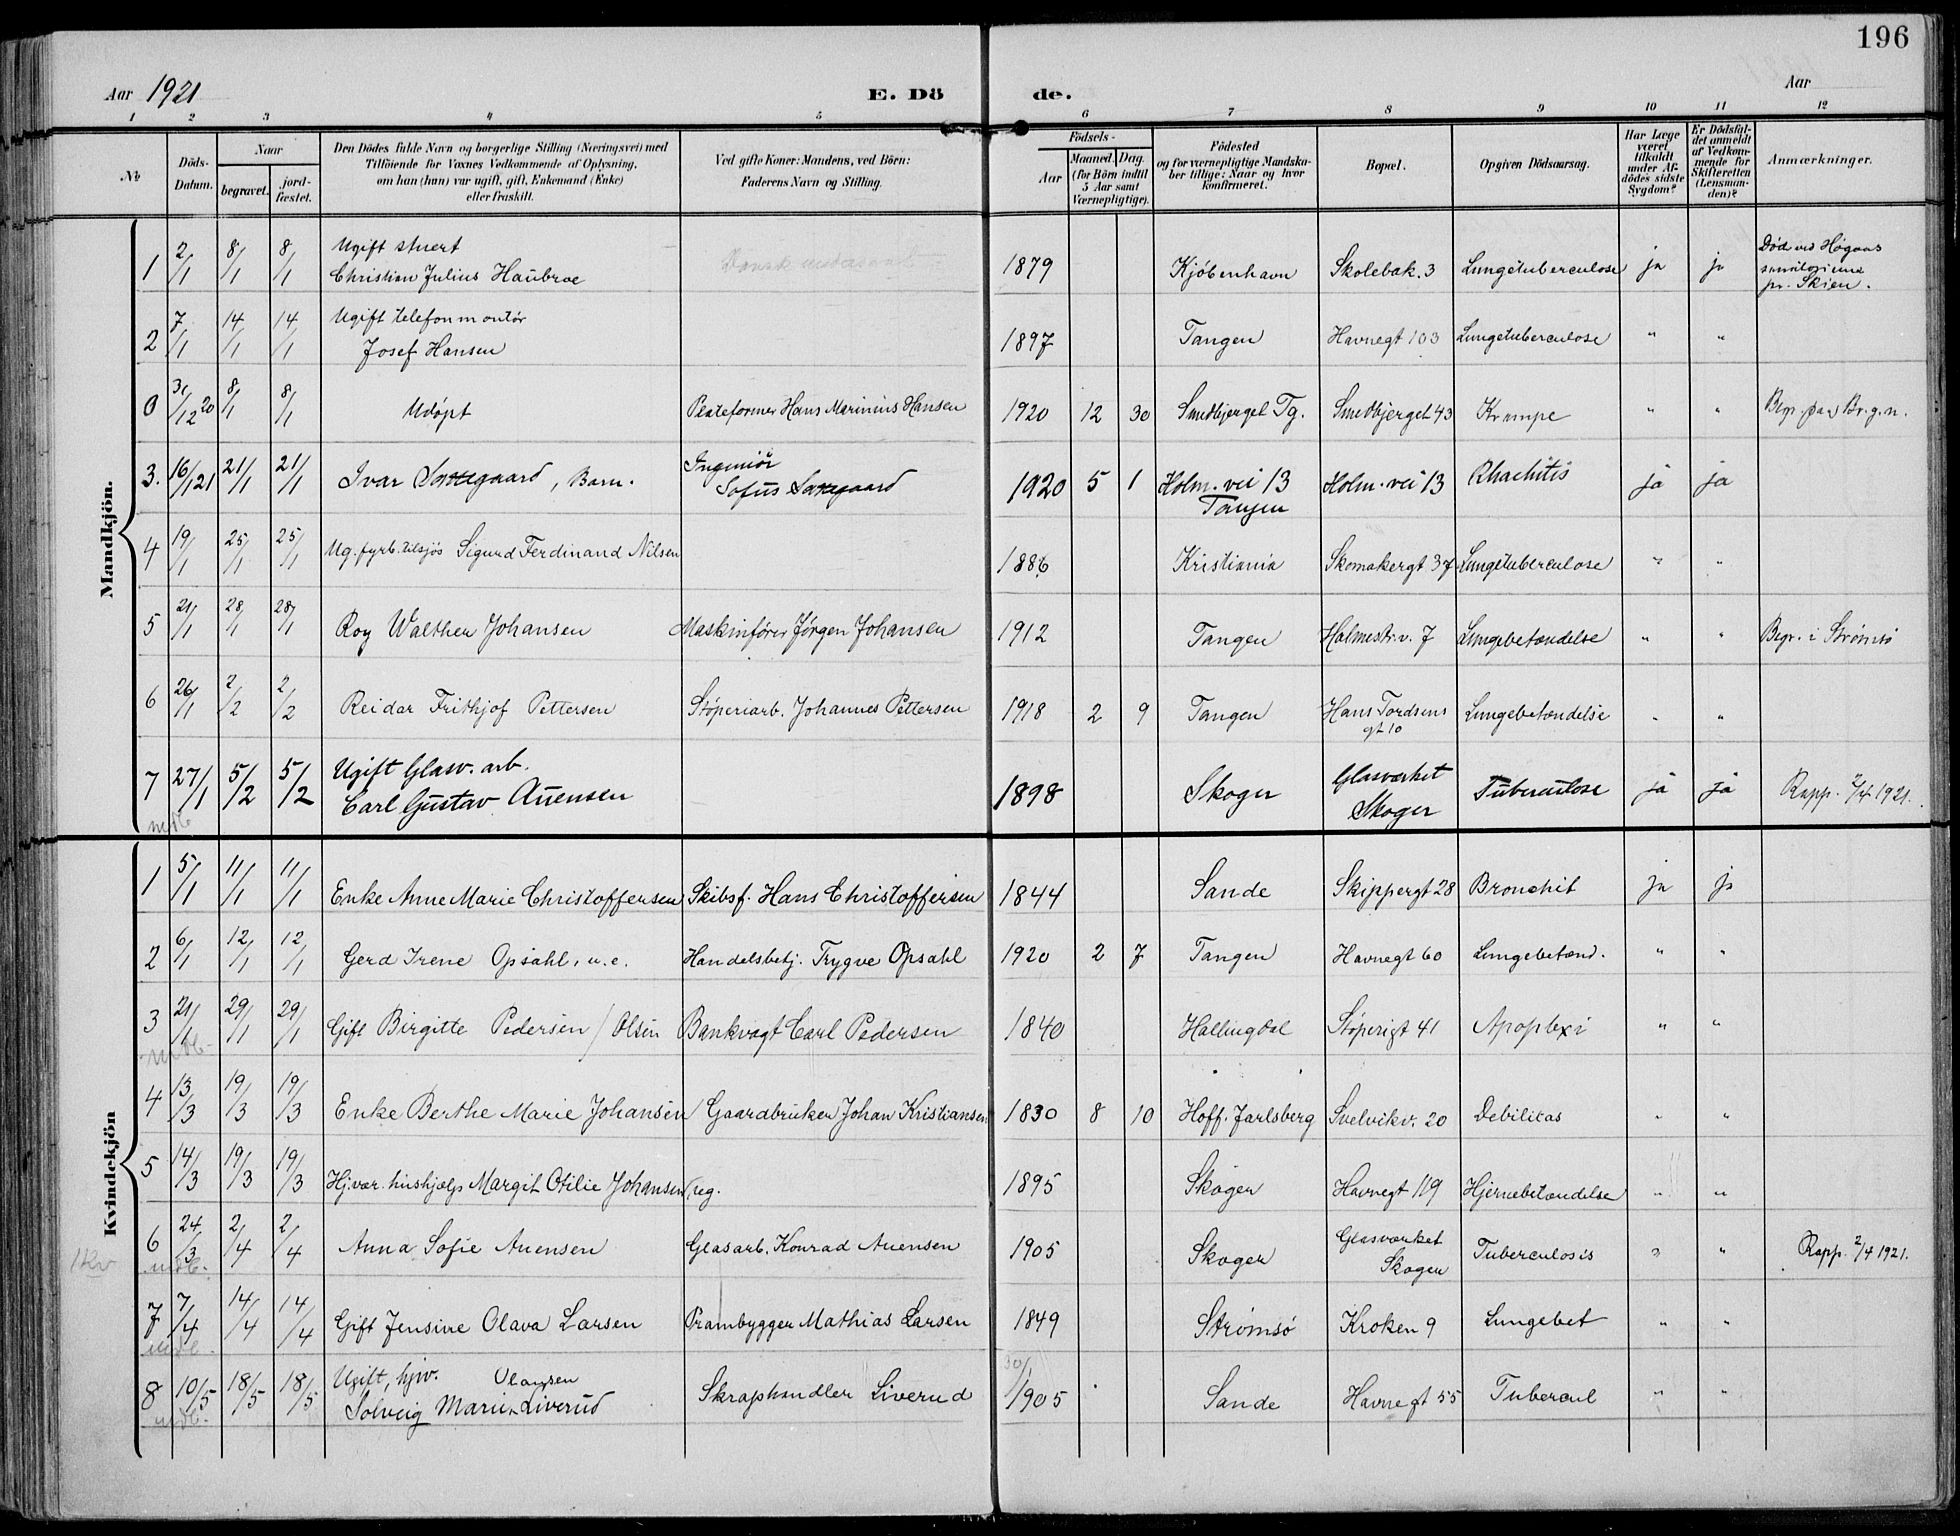 196
Aar 1921
E. Dö
de.
Aar
1 2 3 4 5 6 7 8 9 10 11 12
No
Döds-Datum.
Naar
begravet.
jord-fæstet.
Den Dödes fulde Navn og borgerlige Stilling (Næringsvei) med
Tilföiende for Voxnes Vedkommende af Oplysning,
om han (hun) var ugift, gift, Enkemand (Enke)
eller fraskilt.
Ved gifte Koner: Mandens, ved Börn:
Faderens Navn og Stilling.
Födsels-
Aar
Maaned. Dag.
(for Börn indtil
5 Aar samt
Værnepligtige).
Födested
og for værnepligtige Mandska-
ber tillige: Naar og hvor
konfirmeret.
Bopæl.
Opgiven Dödsaarsag.
Har Læge
været
tilkaldt
under Af-
dödes sidste
Sygdom?
Er Dödsfal-
det anmeldt
af Vedkom-
mende for
Skifteretten
(Lensman-
den)?
Anmærkninger.
Mandkjön.
1 2/1 8/1 8/1 Ugift stuert
Christian Julius Haubroe 1879 Kjøbenhavn Skolebak. 3 Lungetuberculose ja ja Død ved
pr. Skien.
2 7/1 14/1 14/1 Ugift telefonmontør
Josef Hansen 1897 Tangen Havnegt 103 Lungetuberculose " "
0 31/12 20 8/1 8/1 Udøpt Plateformer Hans Marinius Hansen 1920 12 30 Smedbjerget Tg. Smedbjerget 43 Krampe " " Begr. paa Br.g.n.
3. 16/1 21 21/1 21/1 Ivar , Barn. Ingeniör
Sofus 1920 5 1 Holm. vei 13
Tangen Holm. vei 13 Rhachitis ja ja
4 19/1 25/1 25/1 Ug. fyrb. tilsjøs Sigurd Ferdinand Nilsen 1886 Kristiania Skomakergt 37 Lungetuberculose " "
5 21/1 28/1 28/1 Roy Walther Johansen Maskinfører Jørgen Johansen 1912 Tangen Holmestr.v. 7 Lungebetændelse " " Begr. i Strømsø
6 26/1 2/2 2/2 Reidar Frithjof Pettersen Støperiarb. Johannes Pettersen 1918 2 9 Tangen Hans Tordsens
gt 10 Lungebetændelse " "
7 27/1 5/2 5/2 Ugift Glasv. arb.
Carl Gustav Auensen 1898 Skoger Glasværket
Skoger Tuberculose ja ja Rapp. 2/4 1921.
mdb
Kvindekjön
1 5/1 11/1 11/1 Enke Anne Marie Christoffersen Skibsf. Hans Christoffersen 1844 Sande Skippergt 28 Bronchit ja ja
2 6/1 12/1 12/1 Gerd Irene Opsahl, u.e. Handelsbetj. Trygve Opsahl 1920 2 7 Tangen Havnegt 60 Lungebetænd. " "
3 21/1 29/1 29/1 Gift Birgitte Pedersen / Olsen Bankvagt Carl Pedersen 1840 Hallingdal Støperigt 41 Apoplexi " "
mdb.
4 13/3 19/3 19/3 Enke Berthe Marie Johansen Gaardbruker Johan Kristiansen 1830 8 10 Hoff. Jarlsberg Svelvikv. 20 Debilitas " "
5 14/3 19/3 19/3 Hj.vær. hushjælp Margit Otilie Johansen, reg. 1895 Skoger Havnegt 119 Hjernebetændelse " "
6 24/3 2/4 2/4 Anna Sofie Auensen Glasarb. Konrad Auensen 1905 Skoger Glasværket
Skoger Tuberculosis " " Rapp. 2/4 1921.
mdb.
7 7/4 14/4 14/4 Gift Jensine Olava Larsen Prambygger Mathias Larsen 1849 Strømsø Kroken 9 Lungebet " "
mdb.
8 10/5 18/5 18/5 Ugift, hjv. Olausen
Solveig Marie Liverud Skraphandler Liverud 30/1 1905 Sande Havnegt 55 Tubercul " "
mdb.